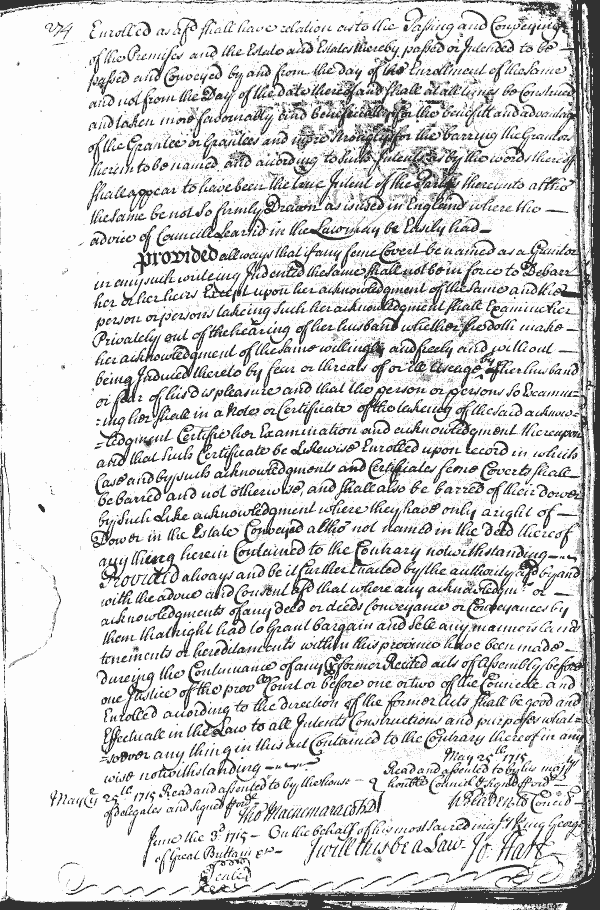 274
Enrolled as afsd shall have relation as to the Passing and Conveying
of the Premises and the Estate and Estates thereby passed or Intended to be
passed and Conveyed by and from the day of the Enrollment of the same
and not from the Day of the date thereof and shall at all times be Construed
and taken more favourably and beneficially for the benefitt and advantage
of the Grantee or Grantees and more strongly for the barring the Grantors
therein to be named, and according to such Intent as by the words thereof
shall appear to have been the true Intent of the Partys thereunto altho
the same be not so firmly Drawn as is used in England where the
advice of Councill Learnd in the Law may be Easily had
Provided allways that if any feme Covert be named as a Grantor
in any such writeing Indented the same shall not be in force to Debarr
her or her heirs Except upon her acknowledgment of the same and the
person or persons takeing such her acknowledgment shall Examin her
Privately out of the hearing of her husband whether she doth make
her acknowledgment of the same willingly and freely and without
being Induced thereto by fear or threats of or ill Useage by her husband
or fear of his displeasure and that the person or persons so Examin-
-ing her shall in a Note or Certificate of the takeing of the said acknow-
-ledgment Certifie her Examination and acknowledgment thereupon
and that such Certificate be Likewise Enrolled upon record in which
Case and by such acknowledgments and Certificates feme Coverts shall
be barred and not otherwise, and shall also be barred of their dower
by such Like acknowledgment where they have only a right of
Dower in the Estate Conveyed altho not named in the deed thereof
any thing herein Contained to the Contrary notwithstanding
Provided always and be it further Enacted by the authority afsd by and
with the advice and Consent afsd that where any acknowledgmt or
acknowledgments of any deed or deeds Conveyance or Conveyances by
them that might had to Grant bargain and sell any mannors lands
tenements or hereditaments within this province have been made
dureing the Continuance of any former Recited acts of assembly before
one Justice of the provll Court or before one or two of the Councile and
Enrolled according to the direction of the former Acts shall be good and
Effectuall in the Law to all Intents Constructions and purposes what-
-soever any thing in this act Contained to the Contrary thereof in any
wise notwithstanding
May 25th 1715
May ye 25th 1715 Read and assented to by the house
of delegates and signed
Read and assented to by his majtys
honble Council & signed
Tho Macnemara
June the 3d 1715 - On the behalf of his most sacred majty King George
of Great Brittain &c
I will this be a Law. Jo: Hart
Sealed